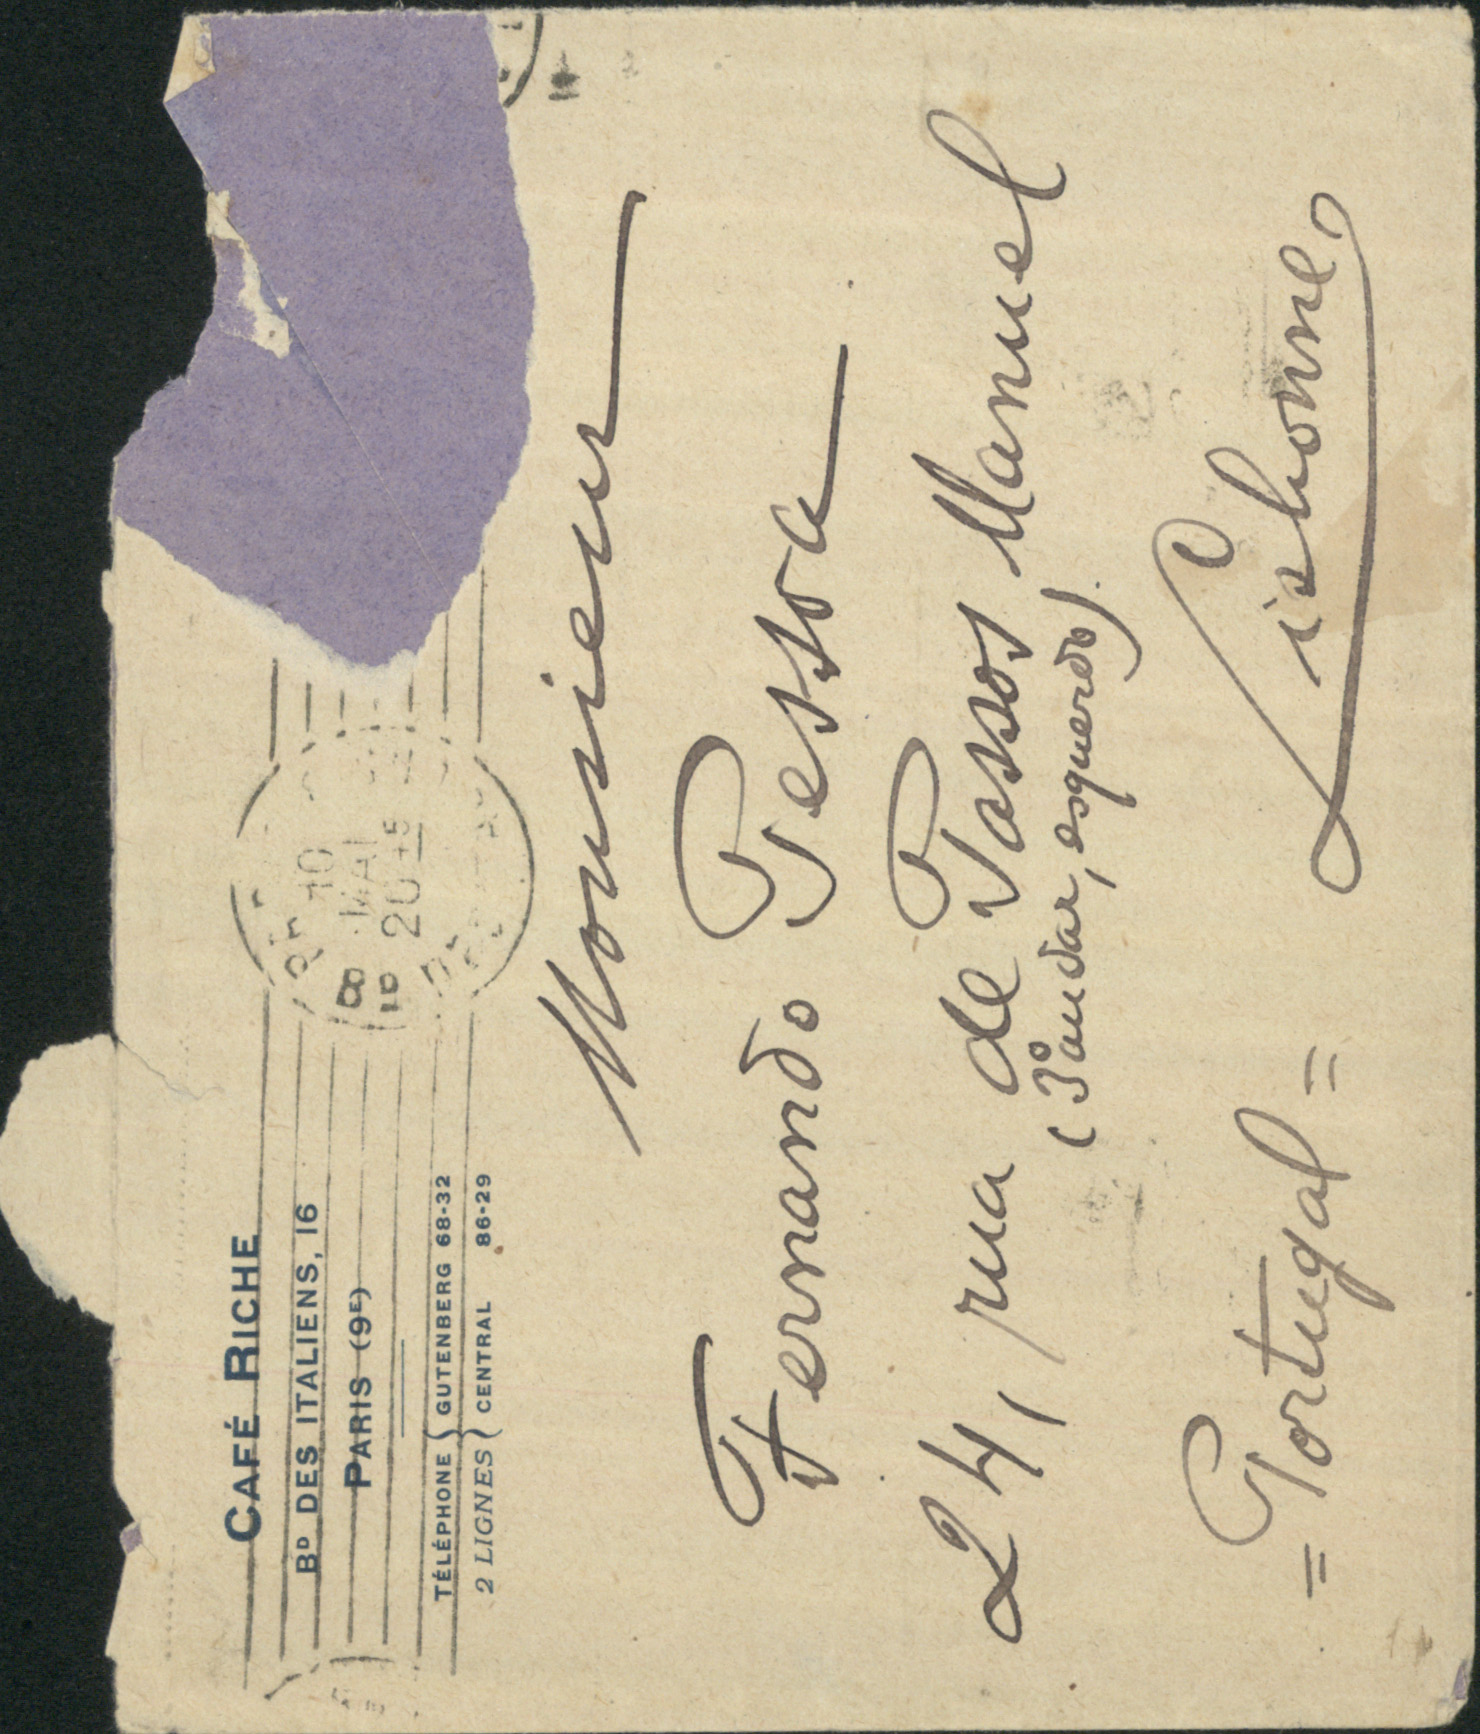 CAFÉ RICHE
Bᴰ DES ITALIENS, 16
PARIS (9ᴱ)
TÉLÉPHONE { GUTENBERG 68-32
2 LIGNES { CENTRAL 86-29
10
MAI
20 15
Monsieur
Fernando Pessoa
24, rua de Passos Manuel
(3º andar, esquerdo).
Lisbonne
= Portugal =